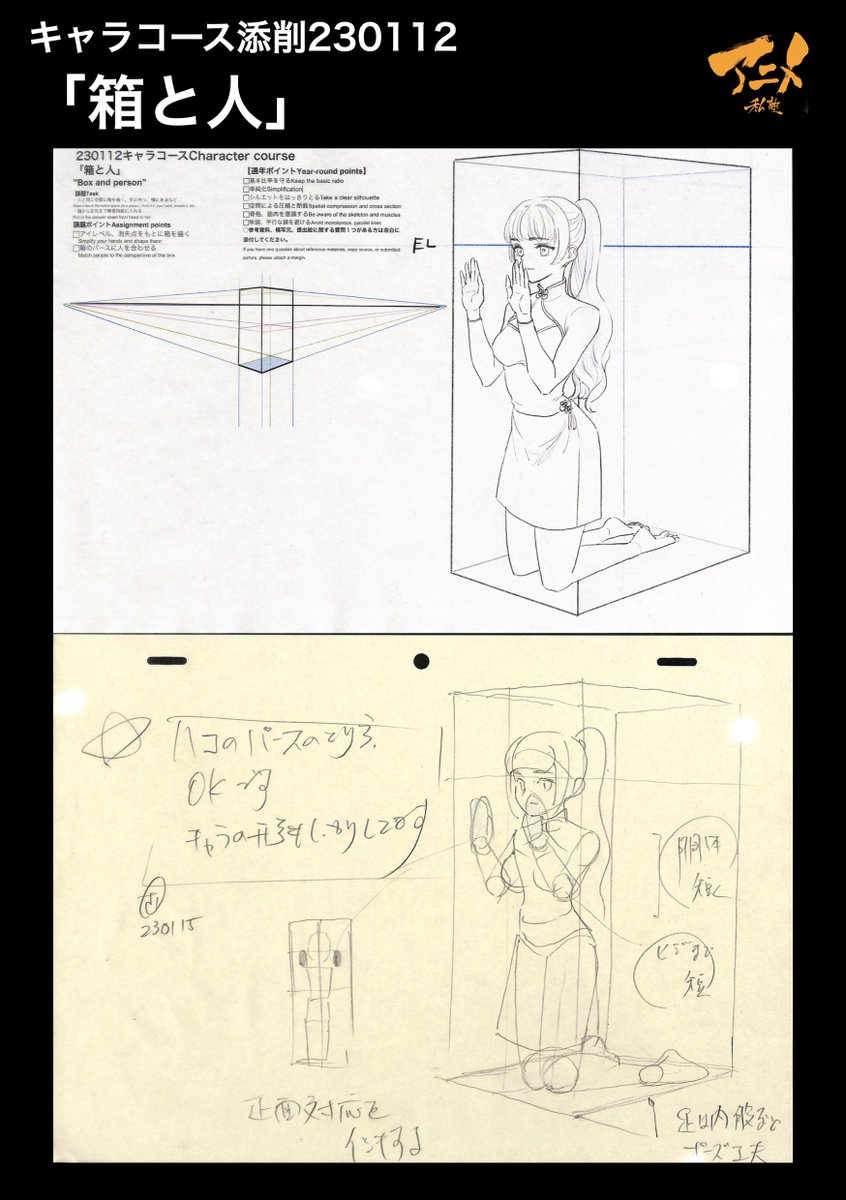 キャラコース添削230112
「箱と人」
アニメ
私塾
230112キャラコースCharacter course
「箱と人」
"Box and person"
課題Task
課題ポイントAssignment points
□アイレベル、消失点をもとに箱を描く
Simplify your hands and shape them
□箱のパースに人を合わせる
Match people to the perspective of the box
【通年ポイントYear-round points】
□基本比率を守るKeep the basic ratio
□単純化Simplification
□シルエットをはっきりとるTake a clear silhouette
□空間による圧縮と断面Spatial compression and cross section
□骨格、筋肉を意識するBe aware of the skeleton and muscles
□単調、平行な線を避けるAvoid monotonous, parallel lines
○参考資料、模写元、提出絵に関する質問1つがある方は余白に
添付してください。
If you have one question about reference materials, copy source, or submitted
picture, please attach a margin
EL
ハコのパースのとり方
OKです
キャラの形もしっかりしてます
230115
胴体
短く
ヒジまで
短
正面対応を
イシキする
足は内股など
ポーズ工夫